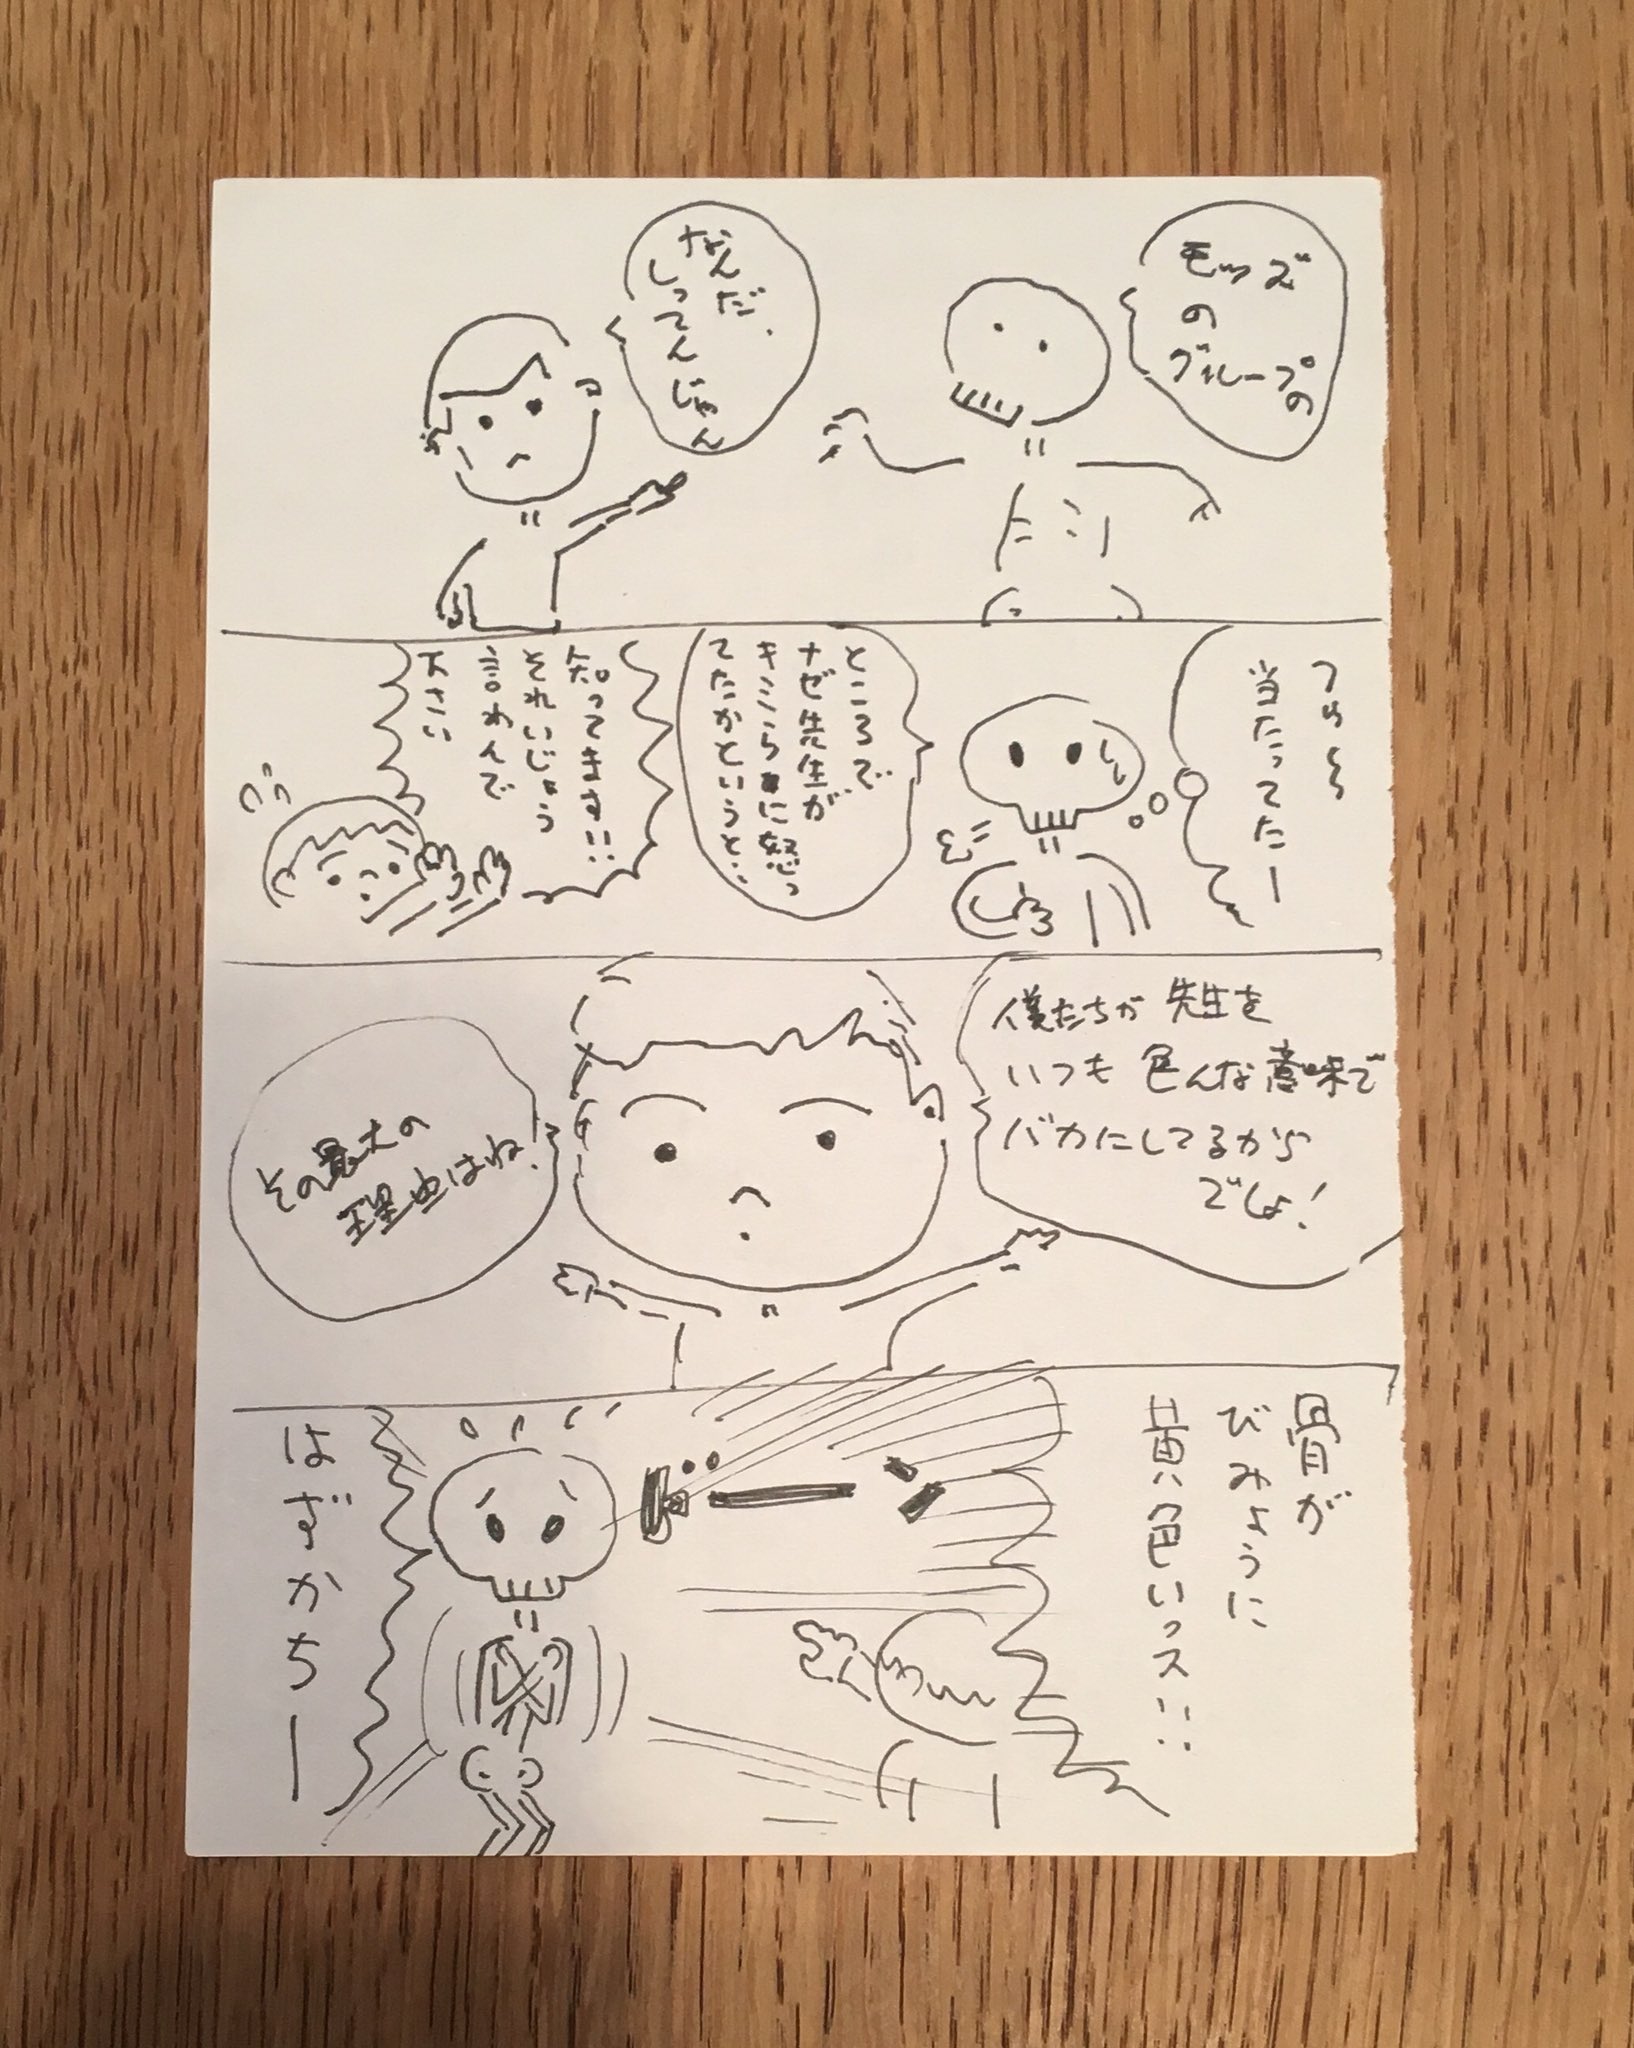 モッズ
の
グループの
なんだ、
しってんじゃん
つぁ〜
当たってたー
ところで
ナゼ先生が
キミらに怒っ
てたかというと…
知ってます!!
それいじょう
言わんで
下さい
僕たちが先生を
いつも色んな意味で
バカにしてるから
でしょ!
その最大の
理由はね!
骨が
びみょうに
黄色いっス!!
はずかちー